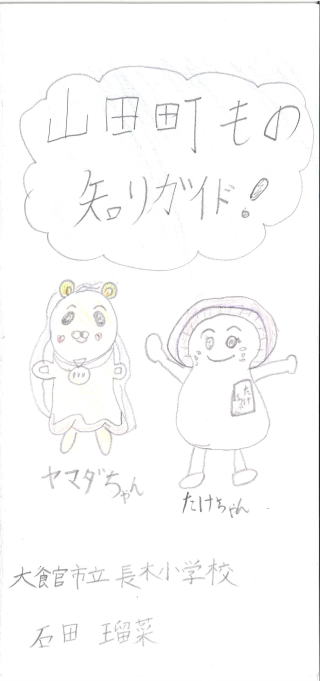 山田町もの
知りガイド!
たけ
ヤマダちゃん
たけちゃん
大館市立 長木小学校
石田 瑠菜